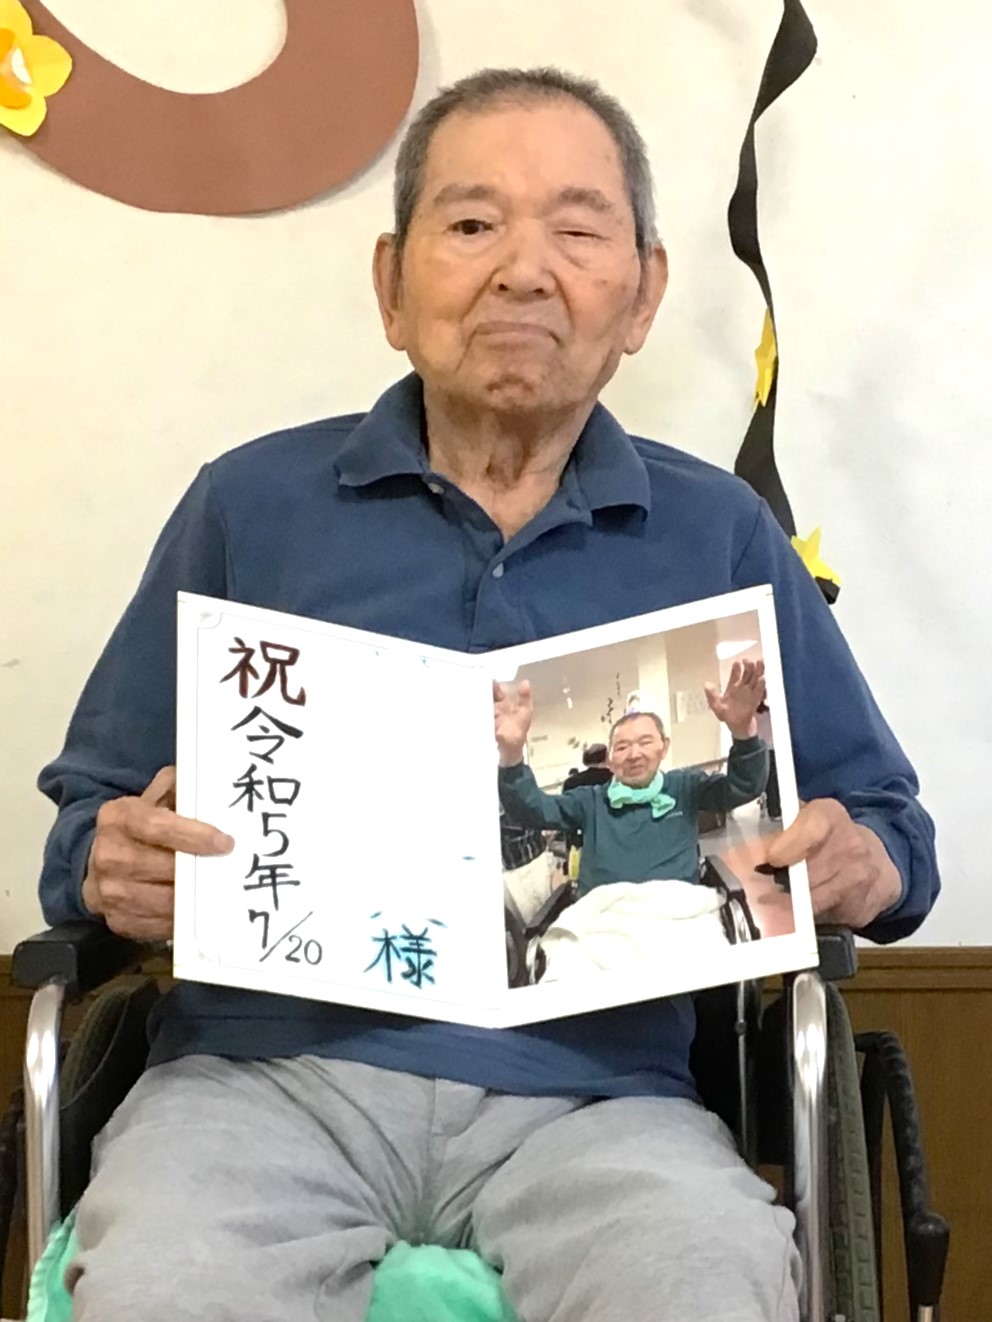 祝
令和5年
7/20
様